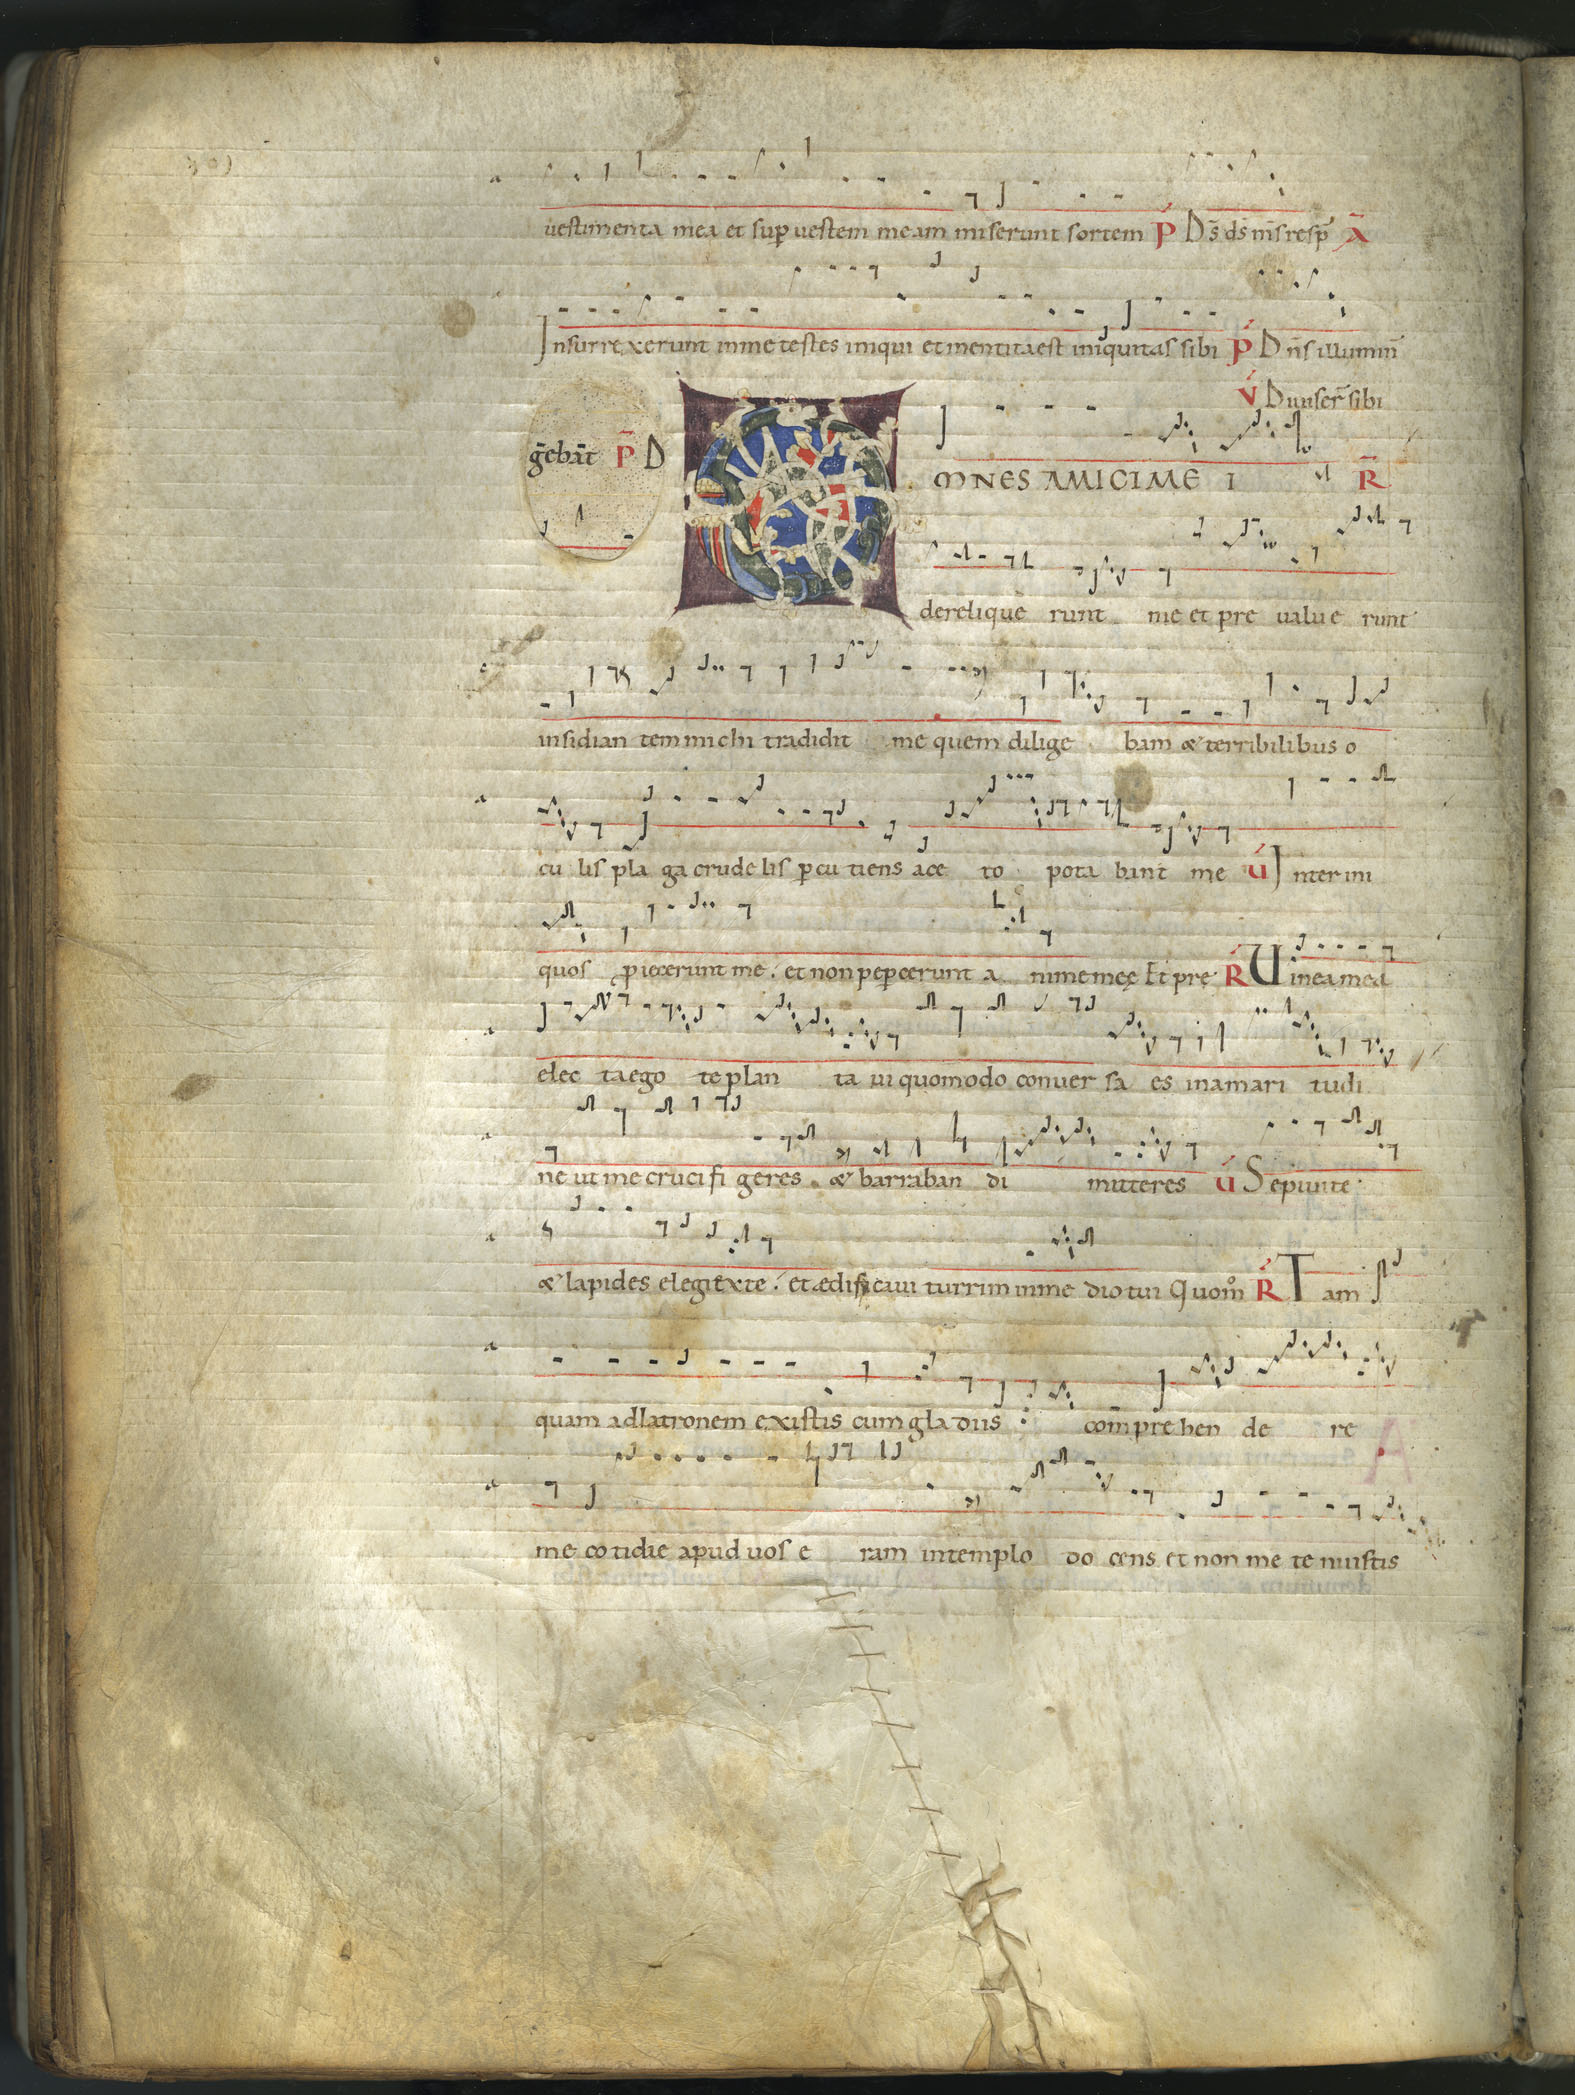 uestimenta mea et sup uestem meam miserunt sortem P̄ Ds̄ ds̄ ms̄ resp̄ Ā
Insurrexerunt in me testes iniqui et mentita est iniquitas sibi P̄ Dn̄s illumin̄
V Diuiser̄ sibi
OMNES AMICI MEI R̄
derelique runt me et pre ualue runt
insidian tem michi tradidit me quem dilige bam & terribilibus o
cu lis pla ga crudelis pcu tiens ace to pota bant me V Inter ini
quos piecerunt me. et non pepcerunt a nime meę Et pre R Uinea mea
elec ta ego te plan ta ui quomodo conuer sa es in amari tudi
ne ut me crucifi geres & barraban di mitteres V Sepiui te
& lapides elegi ex te. et ædificaui turrim in me dio tui Quom̊ R Tam
quam ad latronem existis cum gladiis comprehen de re
me cotidie apud uos e ram in templo do cens et non me te nuistis